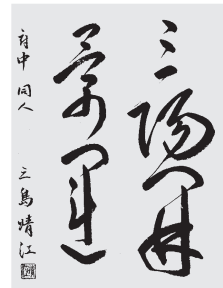 三陽開
景運
府中 同人 三島晴江